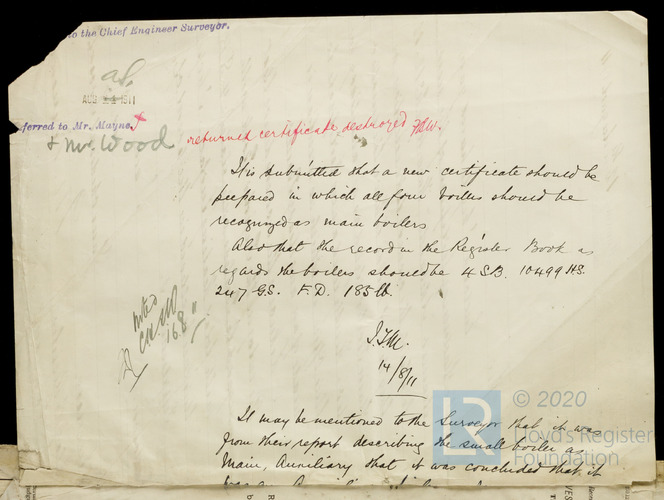 to the Chief Engineer Surveyor.
AUG 1911
ferred to Mr. Mayne
& Mr. Wood
returned certificate destroyed
It is submitted that a new certificate should be
prepared in which all four boilers should be
recognized as main boilers
Also that the record in the Register Book as
regards the boilers should be 4 SB. 10499 HS.
247 G.S. F.D. 185 lb.
noted
16.8.11
14/8/11
© 2020
Lloyd's Register
Foundation
LR
It may be mentioned to the Surveyor that it was
from their report describing the small boiler as
Main, Auxiliary that it was concluded that it